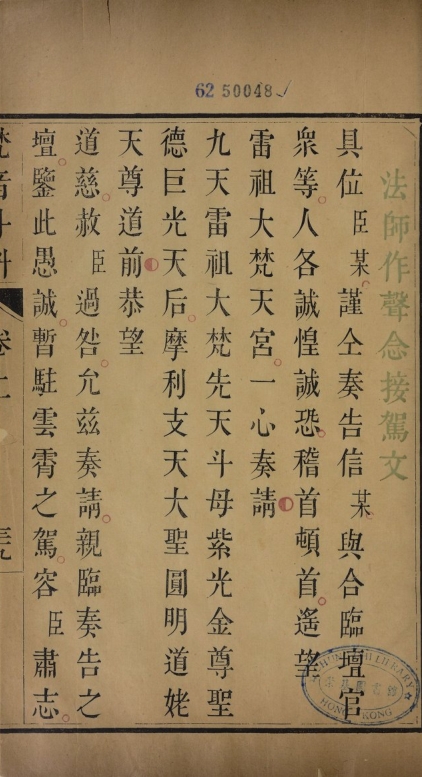 62 50048
法師作聲念接駕文
具位臣某謹仝奏告信某與合臨壇官
衆等人各誠惶誠恐稽首頓首遙望
雷祖大梵天宮一心奏請
九天雷祖大梵先天斗母紫光金尊聖
德巨光天后摩利支天大聖圓明道姥
天尊道前恭望
道慈赦臣過咎允玆奏請親臨奏告之
壇鑒此愚誠暫駐雲霄之駕容臣肅志
梵音斗科
卷上
LIBRARY
HONG KONG